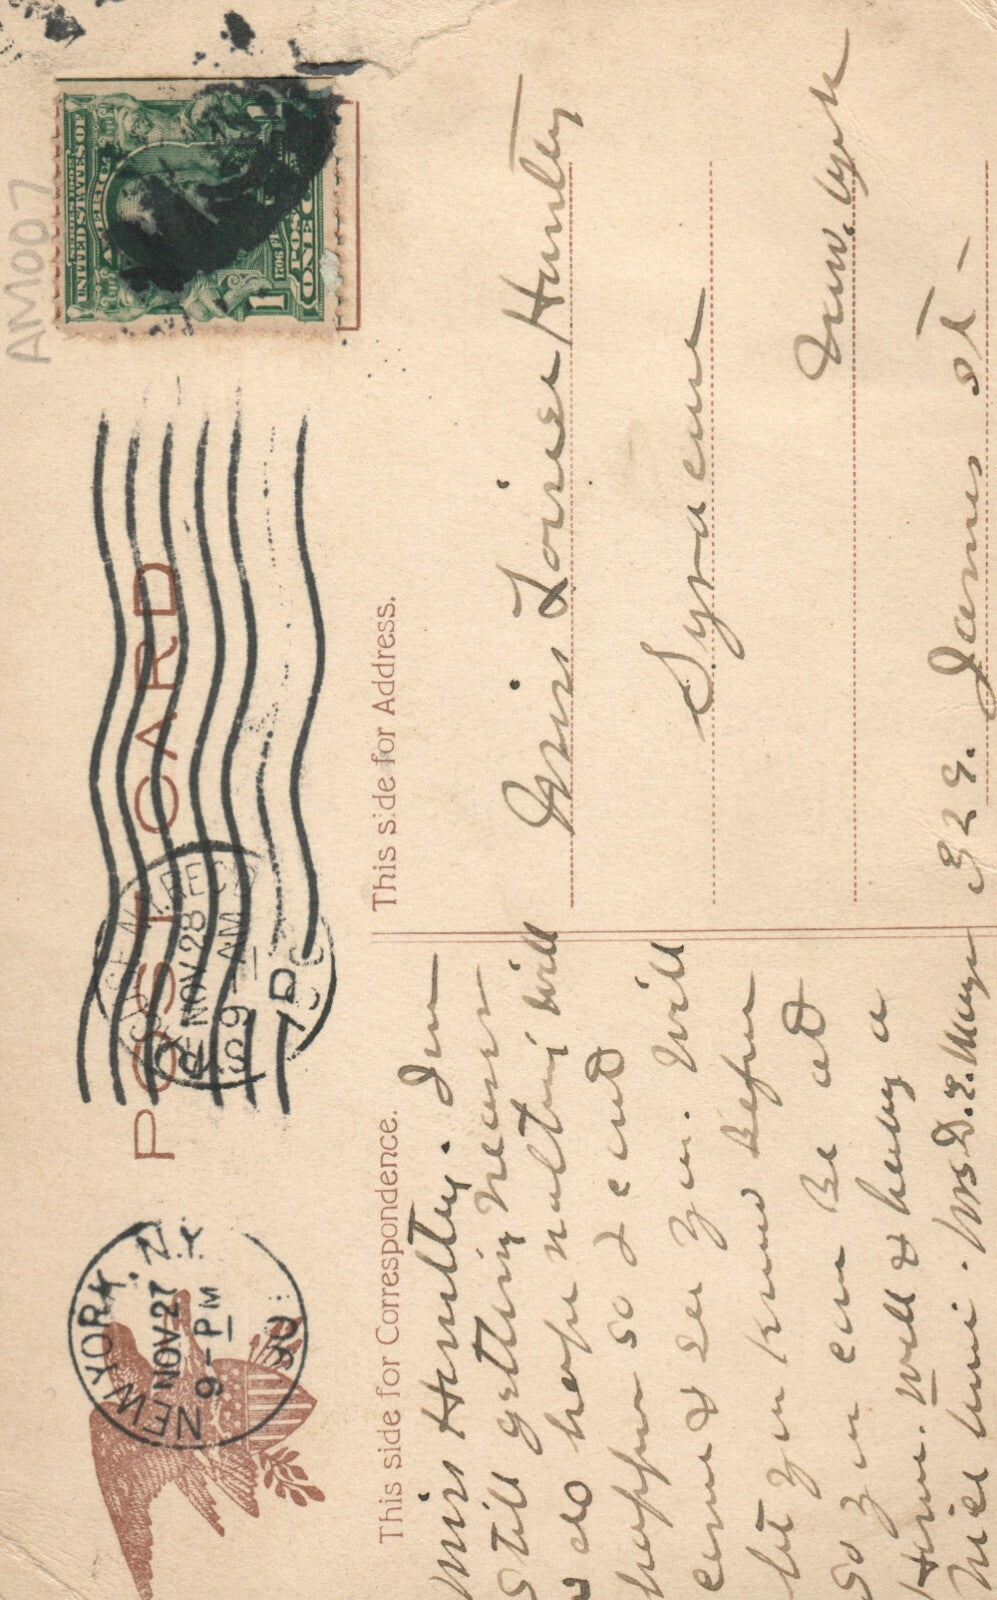 AM007
SERIES 1902
UNITED STATES OF
AMERICA
POST
ONE
1
POST CARD
NEW YORK, N.Y.
NOV 27
9-PM
REC'D
NOV 28
9-AM
This side for Correspondence.
This side for Address.
Miss Huntley. I'm
still getting nearer
& do hope nothing will
happen so I can't
come & see you. Will
let you know before
so you can be at
Home. Will & having a
nice time. Mrs D. E.
Miss Louise Huntley
Syracuse
New York
329. James St-